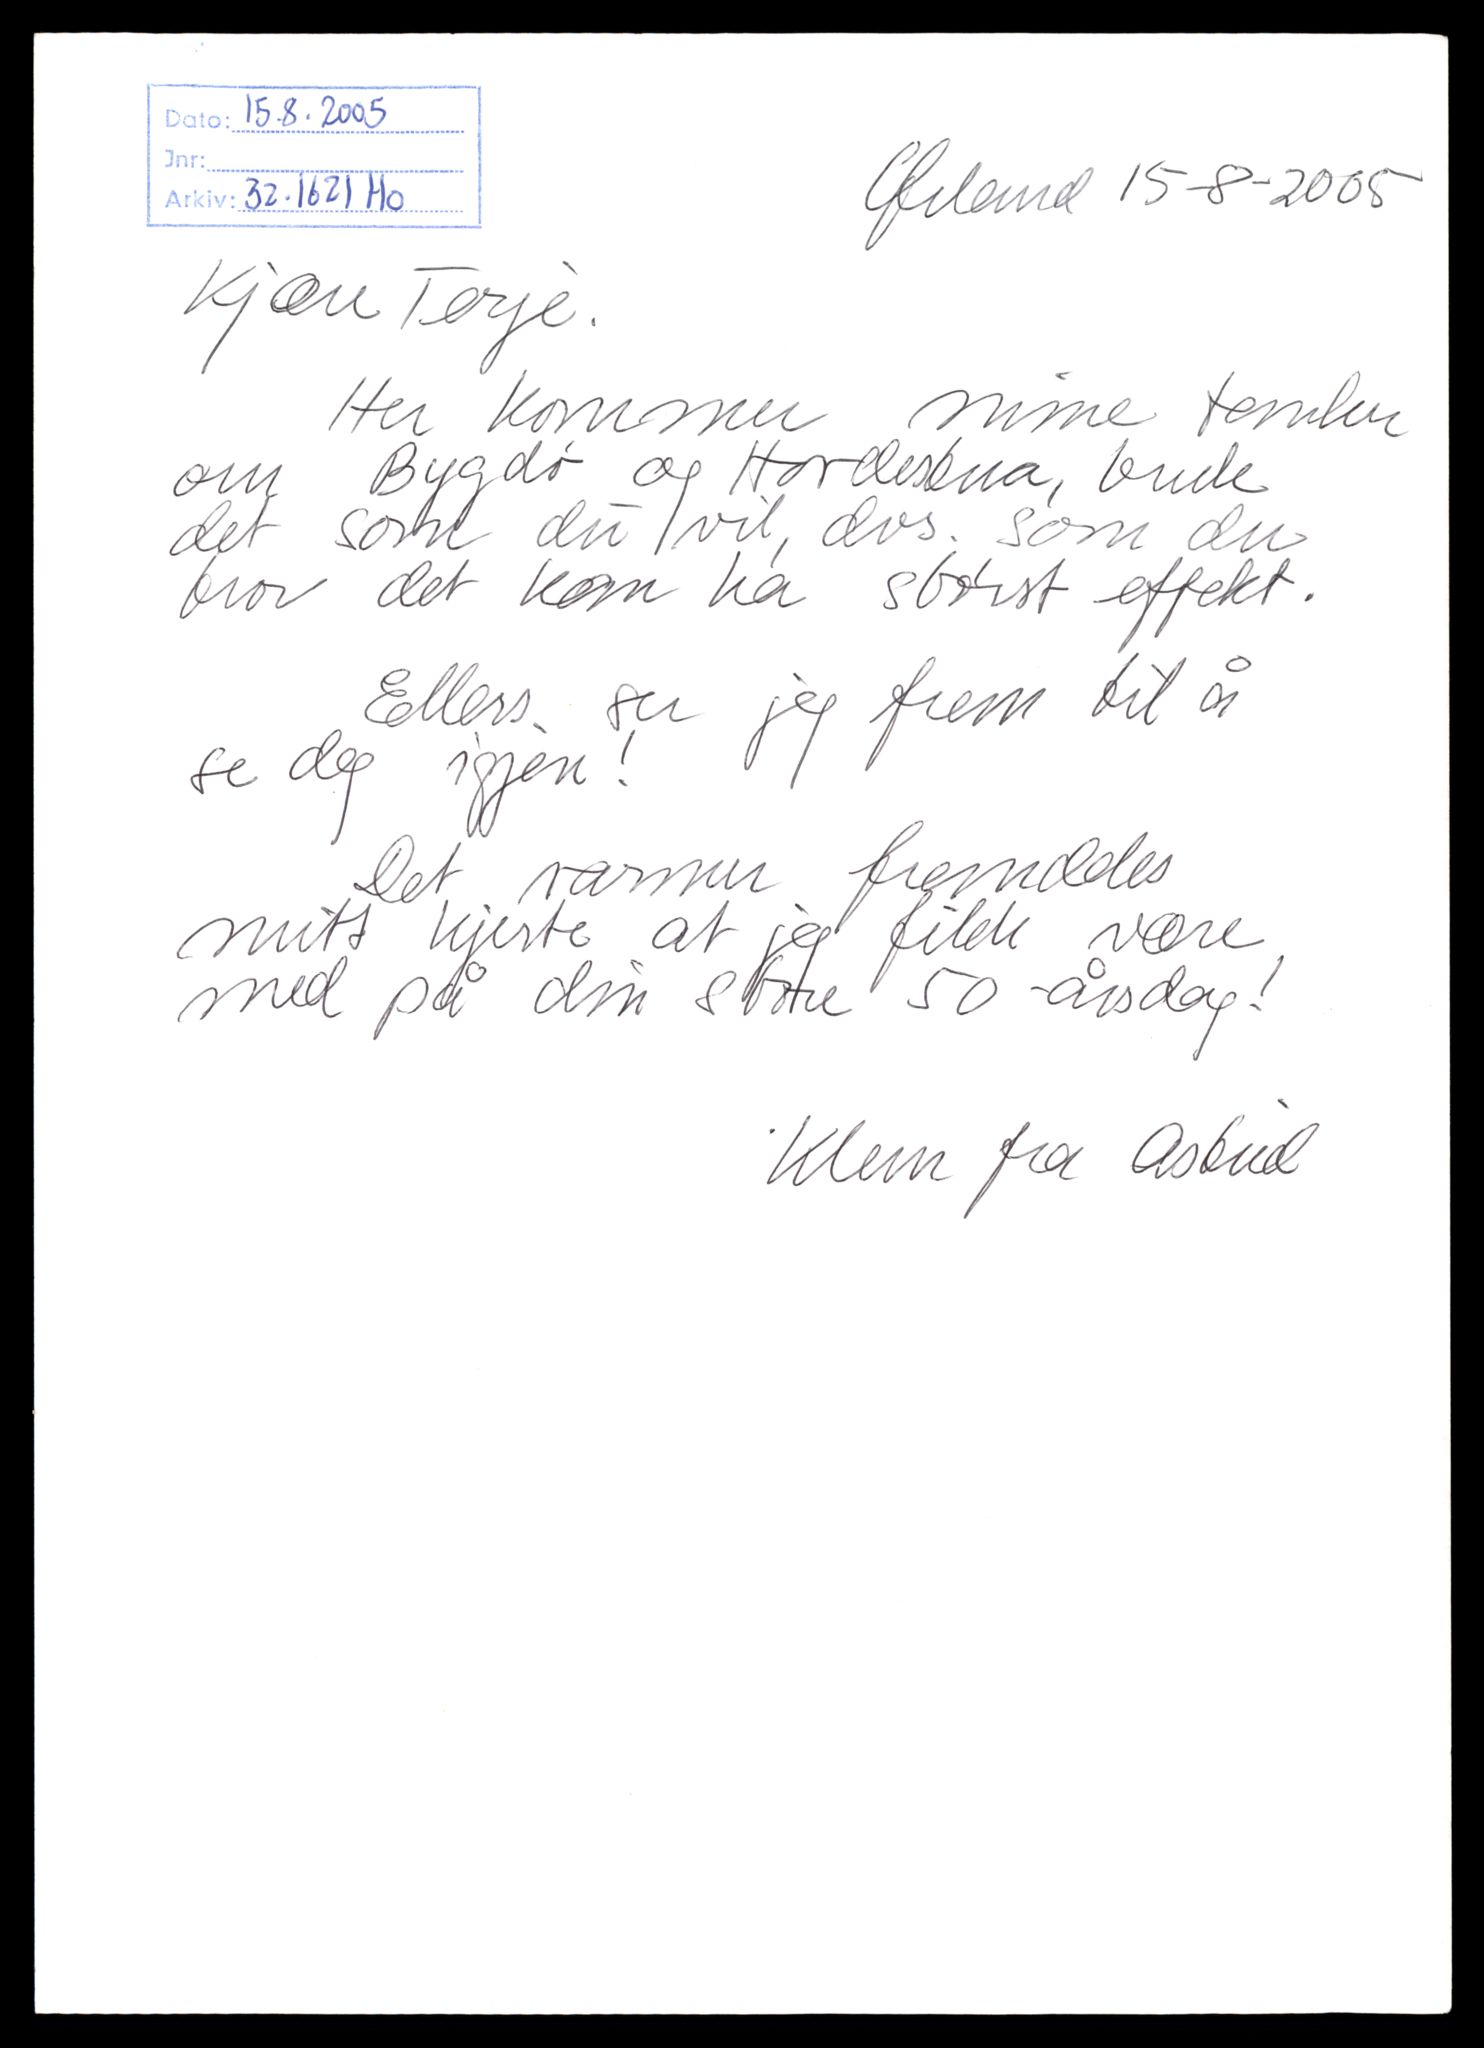 Dato: 15.8.2005
Jnr:
Arkiv: 32.1621 Ho
15-8-2005
Kjære Terje.
Her kommer mine tanker
om Bygdø og bruk
det som du vil, dvs. som du
tror det kan ha størst effekt.
Ellers ser jeg frem til å
se deg igjen!
Det varmer fremdeles
mitt hjerte at jeg fikk være
med på din store 50-årsdag!
Klem fra Astrid